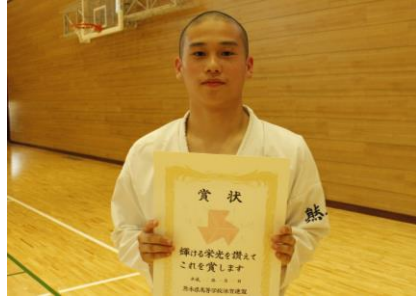 賞状
輝ける栄光を讃えて
これを賞します
熊本県高等学校体育連盟
熊